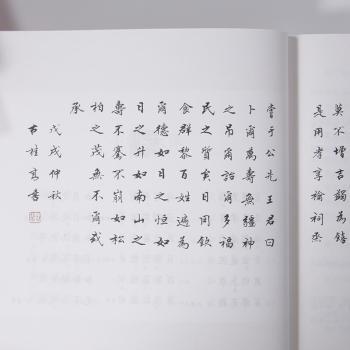 莫不增吉蠲為饎
是用孝享禴祠烝
嘗于公先王君曰
卜爾萬壽無疆神
之吊矣詒爾多福
民之質矣日用飲
食群黎百姓遍為
爾德如月之恒如
日之升如南山之
壽不騫不崩如松
柏之茂無不爾或
承
戊戌仲秋
古桂書